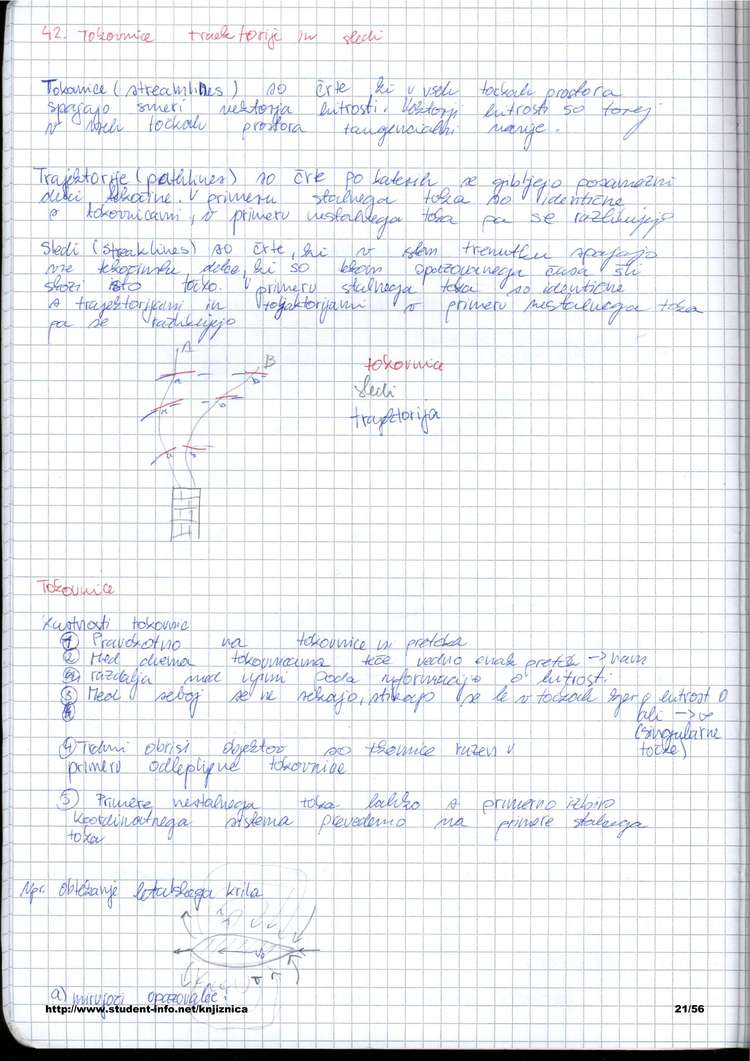 42. Tokovnice traektorije in sledi
Tokovnice (streamlines) so črte ki v vseh točkah prostora
spajajo smeri vektorja hitrosti. Vektorji hitrosti so torej
v vseh točkah prostora tangencialni nanje.
Trajektorije (pathlines) so črte po katerih se gibljejo posamezni
delci tekočine. V primeru stalnega toka so identične
s tokovnicami, v primeru nestalnega toka pa se razlikujejo
Sledi (streaklines) so črte, ki v istem trenutku spajajo
vse tekočinske delce, ki so tekom opazovanega časa šli
skozi isto točko. V primeru stalnega toka so identične
s trajektorijami in v primeru nestalnega toka
pa se razlikujejo
A
B
a b
a b
a b
tokovnice
sledi
trajektorija
Tokovnice
Lastnosti tokovnic
1 Pravokotno na tokovnice ni pretoka
2 Med dvema tokovnicama teče vedno enak pretok →
razdalja med njimi poda informacijo o hitrosti
3 Med seboj se ne sekajo, stikajo se le v točkah kjer je hitrost 0
ali → ∞
(singularne
točke)
4 Trdni obrisi objektov so tokovnice razen v
primeru odlepljene tokovnice
5 Primere nestalnega toka lahko s primerno izbiro
koordinatnega sistema prevedemo na primere stalnega
toka
Npr. obtekanje letalskega krila
a) mirujoči opazovalec:
http://www.student-info.net/knjiznica
21/56